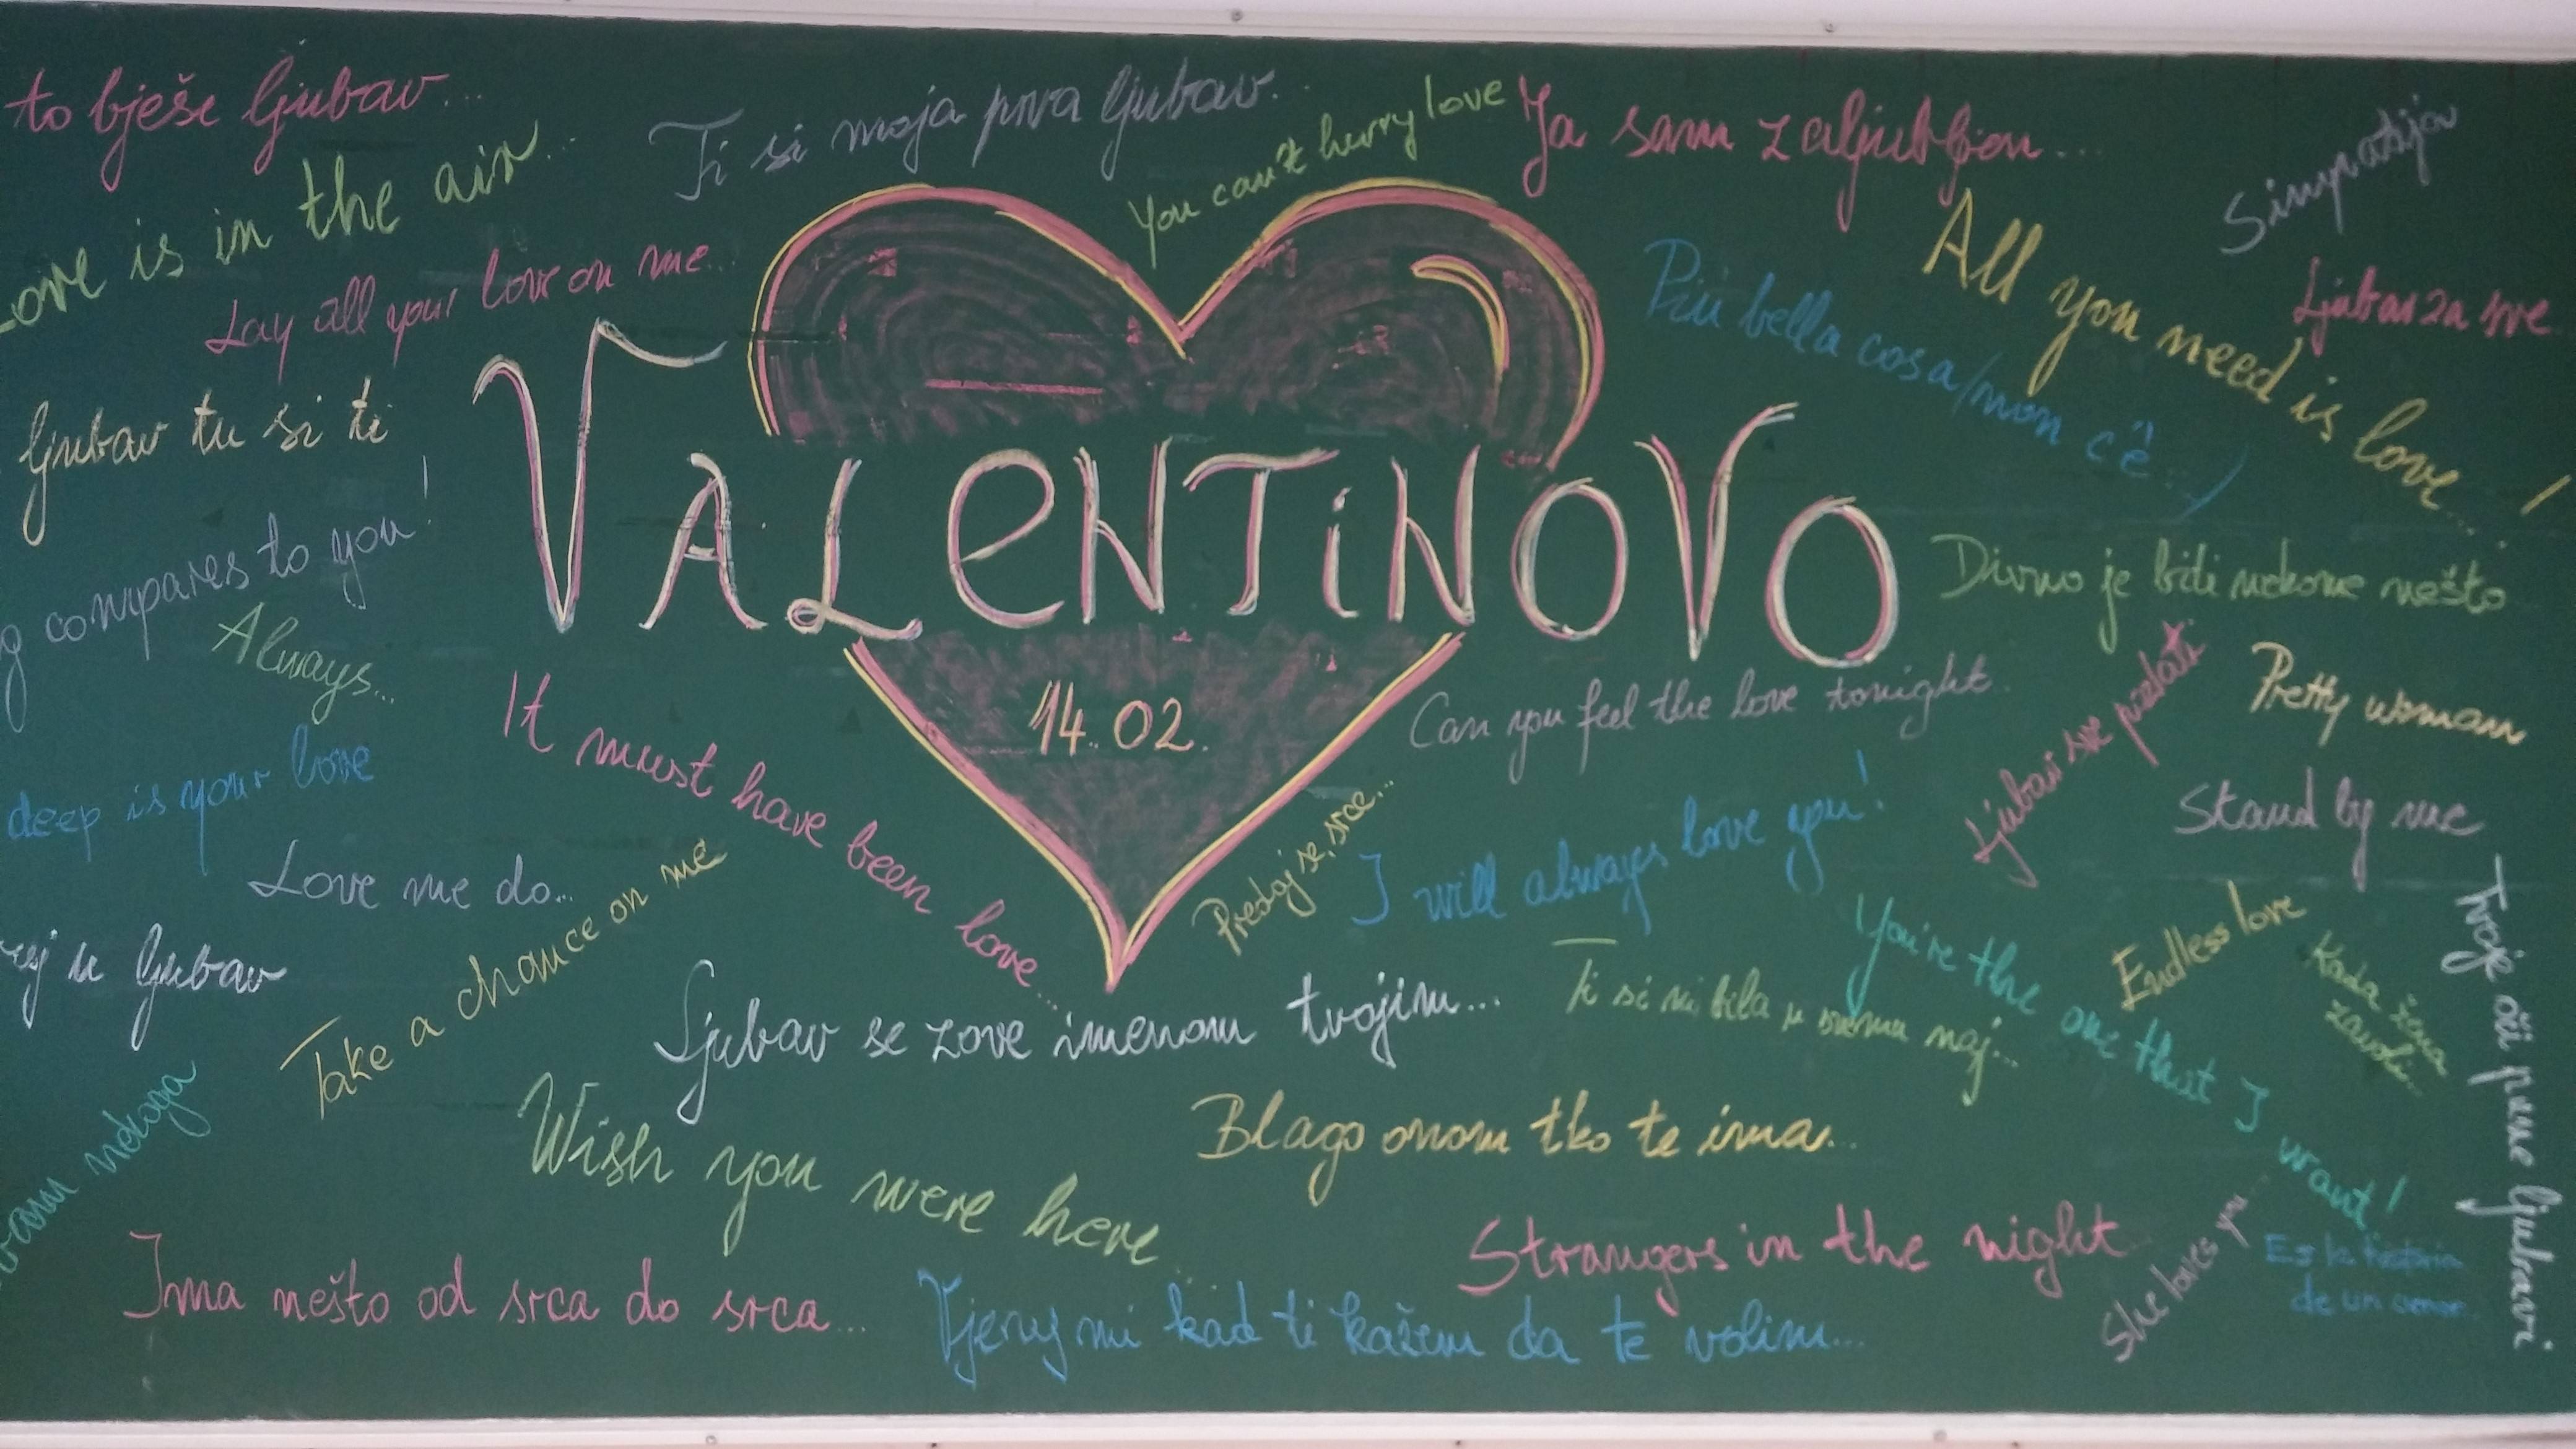 to bješe ljubav...
Ti si moja prva ljubav...
You can't hurry love
Ja sam zaljubljen...
Simpatija
Love is in the air...
All you need is love...!
Lay all your love on me...
Più bella cosa/non c'è...
Ljubav za sve
ljubav tu si ti
VALENTINOVO
compares to you!
Divno je biti nekome nešto
Always...
14.02.
Can you feel the love tonight...
Ljubav sve pozlati
Pretty woman
It must have been love...
deep is your love
Stand by me
Love me do...
Predaj se, srce...
I will always love you!
Take a chance on me
u ljubav
Ljubav se zove imenom tvojim...
Ti si mi bila u svemu naj...
You're the one that I want!
Endless love
Kada žena
zavoli...
Tvoje oči pune ljubavi
nekoga
Wish you were here
Blago onom tko te ima...
Ima nešto od srca do srca...
Strangers in the night
She loves you...
Es la historia
de un amor
Vjeruj mi kad ti kažem da te volim...